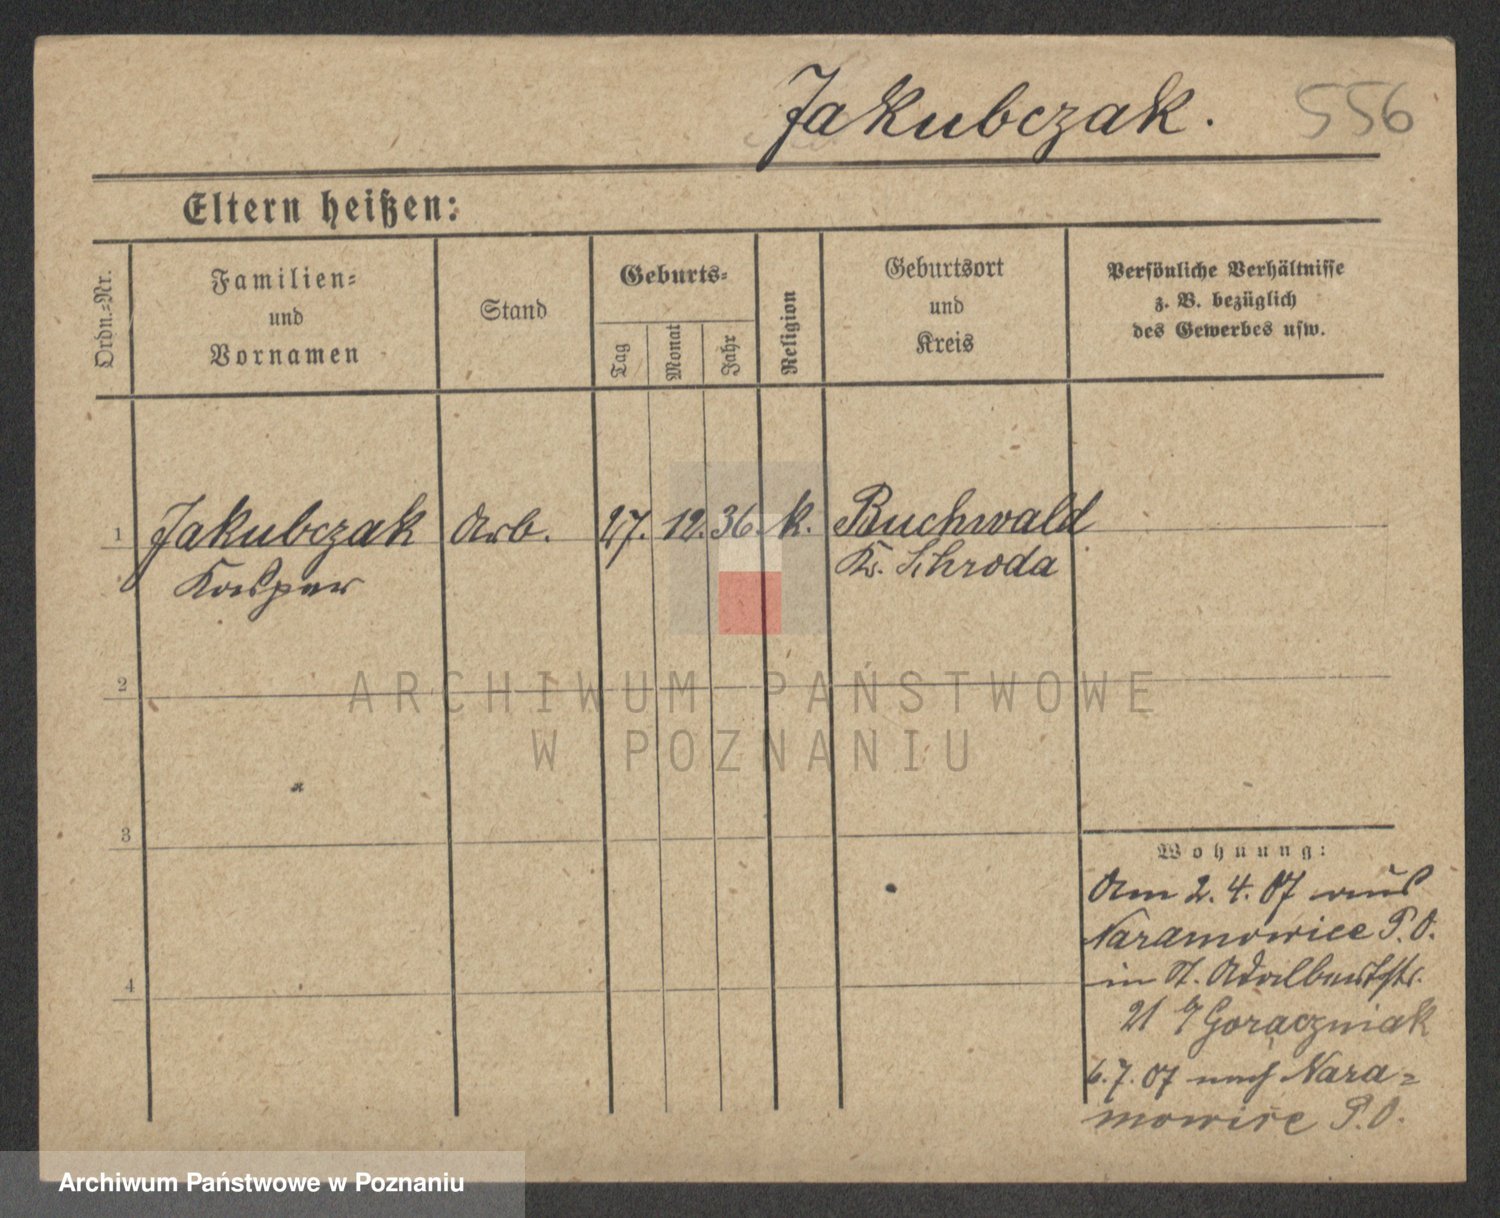 Jakubczak.
556
Eltern heißen:
Ordn.=Nr.
Familien=
und
Vornamen
Stand
Geburts=
Tag
Monat
Jahr
Religion
Geburtsort
und
Kreis
Persönliche Verhältnisse
z. B. bezüglich
des Gewerbes usw.
1 Jakubczak Arb. 27. 12. 36. k. Buchwald
Kasper Kr. Schroda
2
ARCHIWUM PAŃSTWOWE
W POZNANIU
3
Wohnung:
Am 2. 4. 07 aus
Naramowice P. O.
in St. Adalbertstr.
4
21 Gorączniak
6. 7. 07 nach Nara=
mowice P. O.
Archiwum Państwowe w Poznaniu